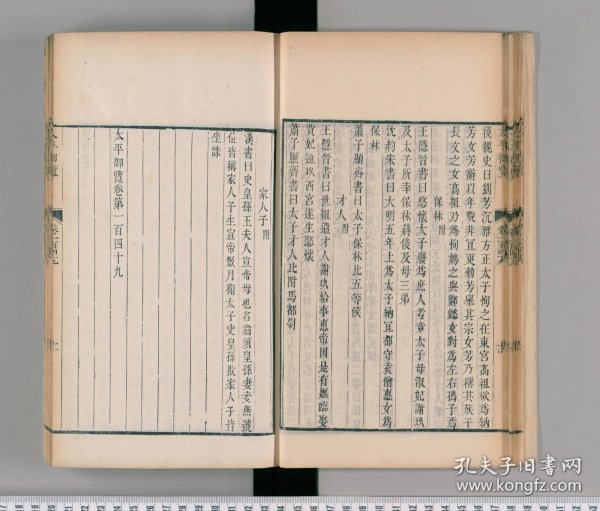 後魏史曰劉芳沉雅方正太子恂之在東宮高祖欲爲納
芳女芳辭以年貌非宜更勑芳舉其宗女芳乃稱其族子
長文之女高祖乃爲恂娉之與鄭懿女對爲左右孺子焉
保林附
王隱晉書曰愍懷太子廢爲庶人考竟太子母淑妃謝玖
及太子所幸保林蔣俊及母三弟
沈約宋書曰大明五年上爲太子納宜都守袁僧惠女爲
保林
蕭子顯齊書曰太子保林比五等侯
才人附
王隱晉書曰世祖遣才人謝玖給事惠帝因是有娠臨娶
賈妃遣玖西宮遂生愍懷
蕭子顯齊書曰太子才人比駙馬都尉
家人子附
漢書曰史皇孫王夫人宣帝母也名翁須皇孫妻妾無號
位皆稱家人子生宣帝數月衞太子史皇孫敗家人子皆
坐誅
太平御覽卷第一百四十九
太平御覽
孔夫子旧书网
www.kongfz.com